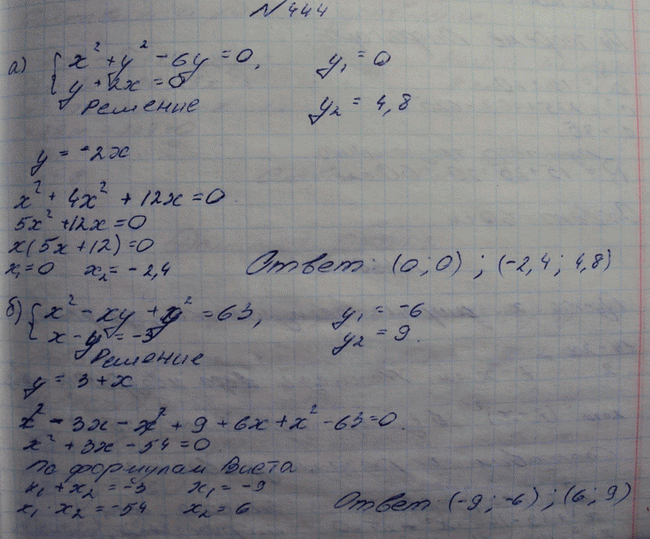 N 444
а) { x² + y² - 6y = 0, y₁ = 0
y + 2x = 0
Решение y₂ = 4,8
y = -2x
x² + 4x² + 12x = 0
5x² + 12x = 0
x(5x + 12) = 0
x₁ = 0 x₂ = -2,4 Ответ: (0; 0); (-2,4; 4,8)
б) { x² - xy + y² = 63, y₁ = -6
x - y = -3 y₂ = 9
Решение
y = 3 + x
x² - 3x - x² + 9 + 6x + x² - 63 = 0.
x² + 3x - 54 = 0
По формулам Виета
x₁ + x₂ = -3 x₁ = -9
x₁ · x₂ = -54 x₂ = 6 Ответ: (-9; -6); (6; 9)